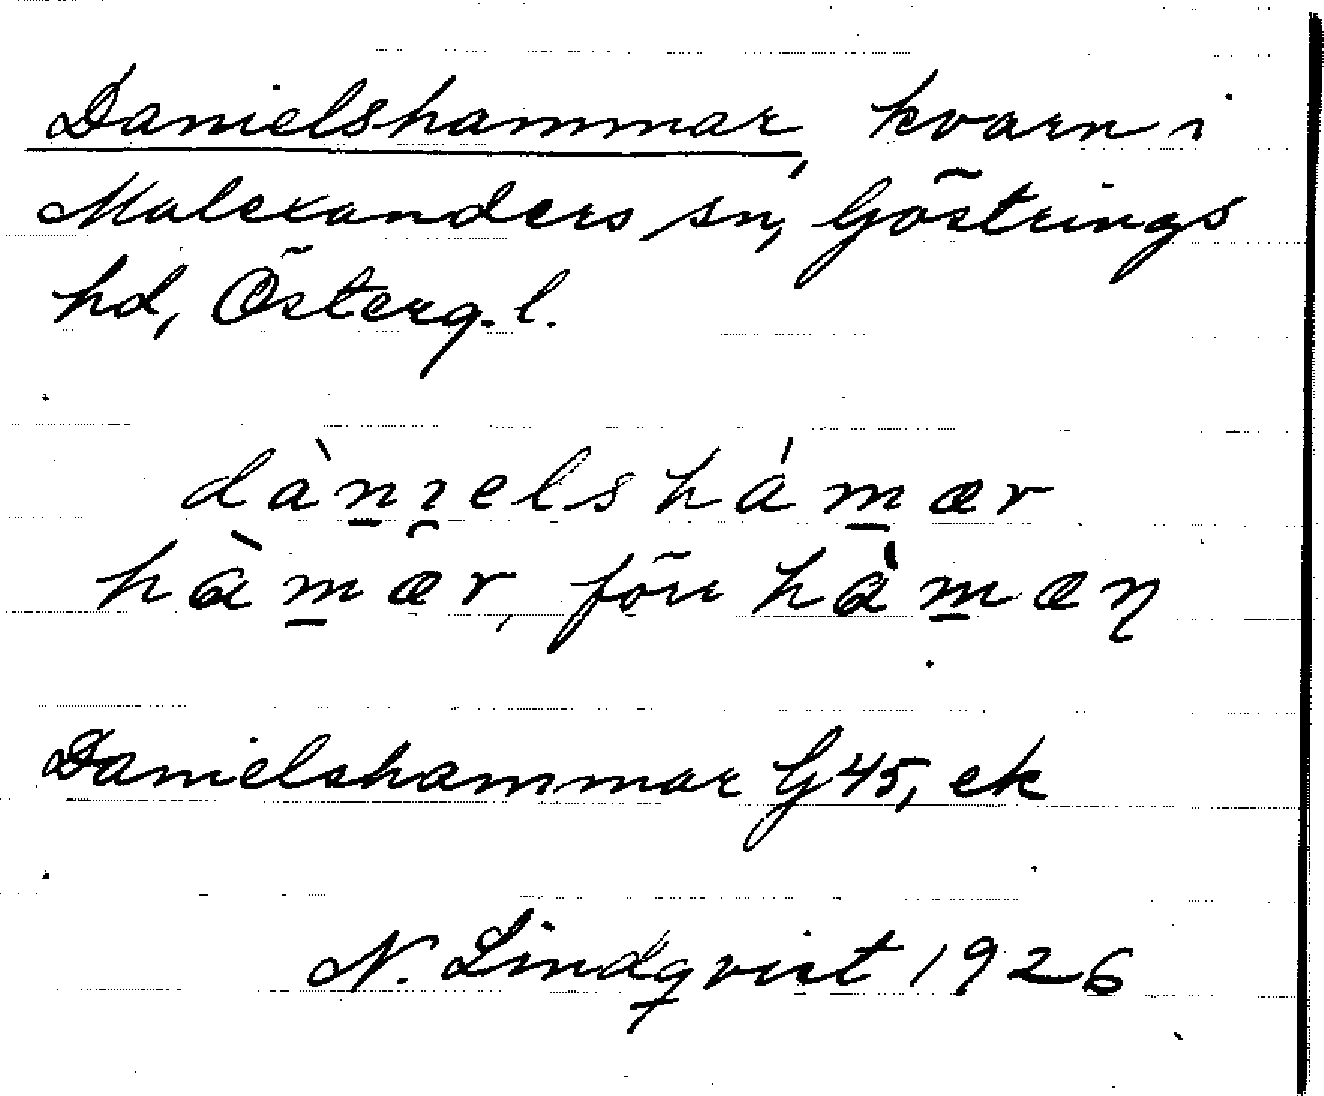 Danielshammar, kvarn i
Malexanders sn, Göstrings
hd, Österg.l.
dàni̯elshámær
hàmær, förr hàmæɳ
Danielshammar G45, ek
N. Lindqvist 1926